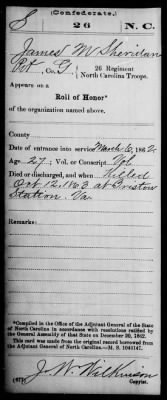 S
(Confederate.)
26
N. C.
James M Sheridan
Pvt, Co. G, 26 Regiment
North Carolina Troops.
Appears on a
Roll of Honor*
of the organization named above.
County
Date of entrance into service March 6, 1862
Age 27; Vol. or Conscript Vol
Died or discharged, and when Killed
Oct 12. 1863 at Bristow
Station. Va.
Remarks:
*Compiled in the Office of the Adjutant General of the State
of North Carolina in accordance with resolutions ratified by
the General Assembly of that State on December 20, 1862.
This card was made from the original record borrowed from
the Adjutant General of North Carolina.—M. S. 1041147.
J. W. Wilkinson
(677)
Copyist.